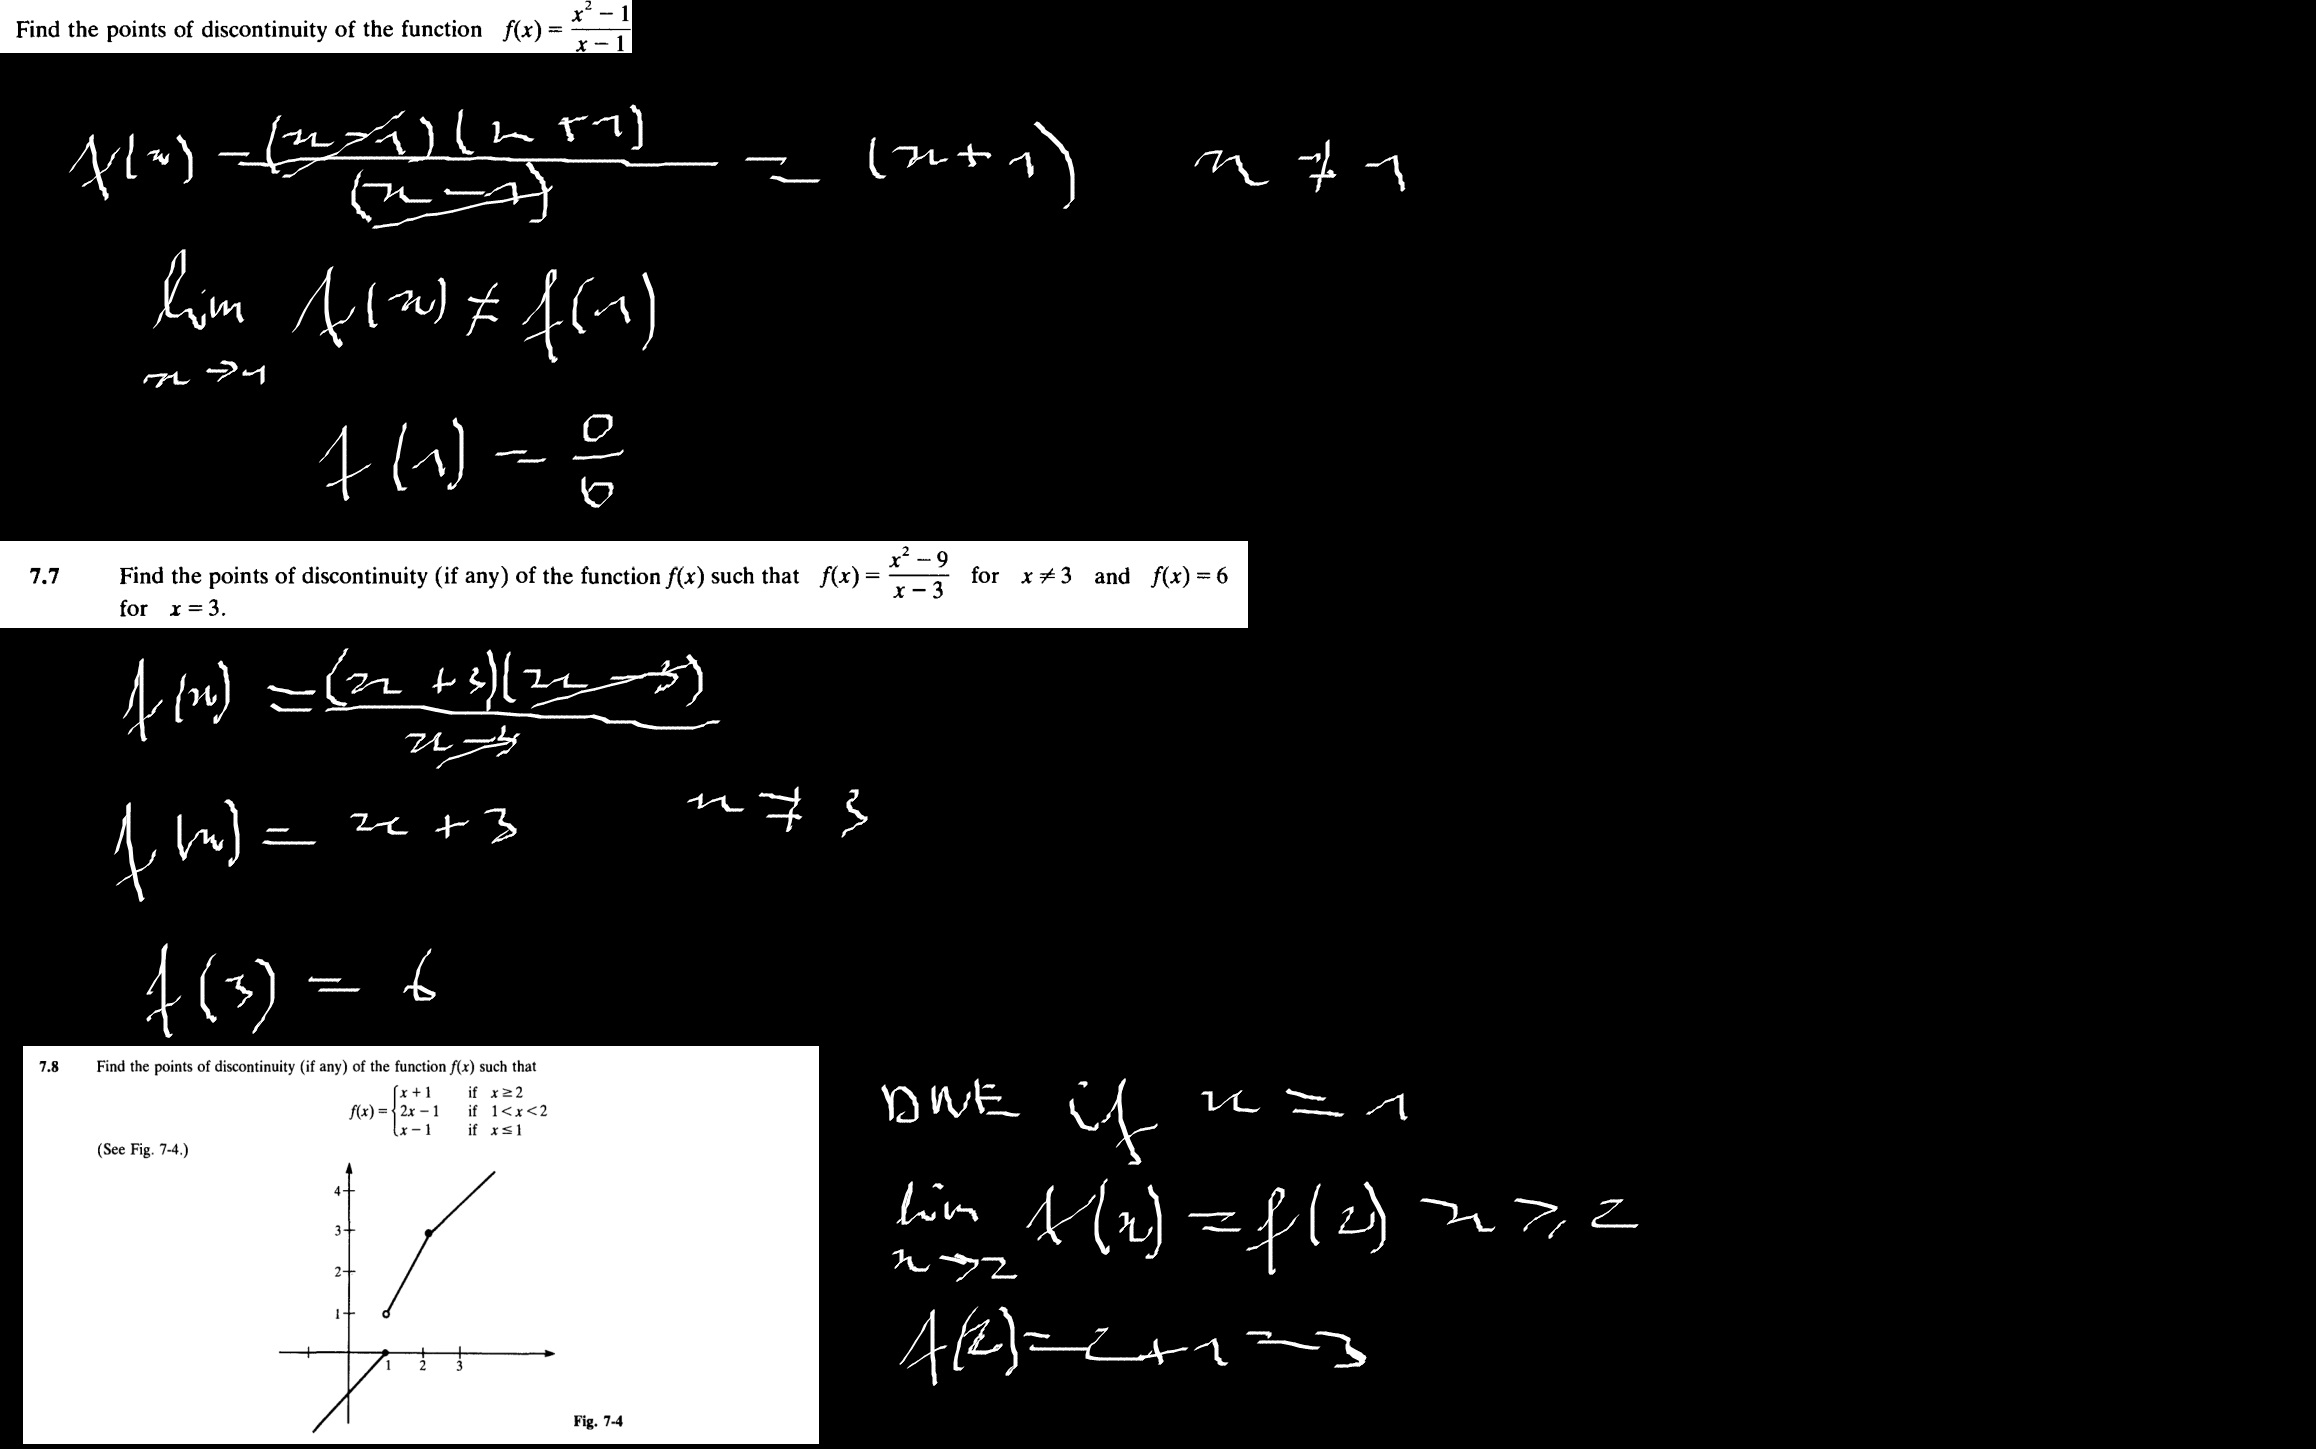 Find the points of discontinuity of the function f(x) = (x² − 1)/(x − 1)
f(x) = (x − 1)(x + 1)/(x − 1) = (x + 1) x ≠ 1
lim x→1 f(x) ≠ f(1)
f(1) = 0/0
7.7 Find the points of discontinuity (if any) of the function f(x) such that f(x) = (x² − 9)/(x − 3) for x ≠ 3 and f(x) = 6
for x = 3.
f(x) = (x + 3)(x − 3)/(x − 3)
f(x) = x + 3 x ≠ 3
f(3) = 6
7.8 Find the points of discontinuity (if any) of the function f(x) such that
f(x) = { x + 1 if x ≥ 2
2x − 1 if 1 < x < 2
x − 1 if x ≤ 1
(See Fig. 7-4.)
4
3
2
1
1 2 3
Fig. 7-4
DNE if x = 1
lim x→2 f(x) = f(2) x ≥ 2
f(2) = 2 + 1 = 3